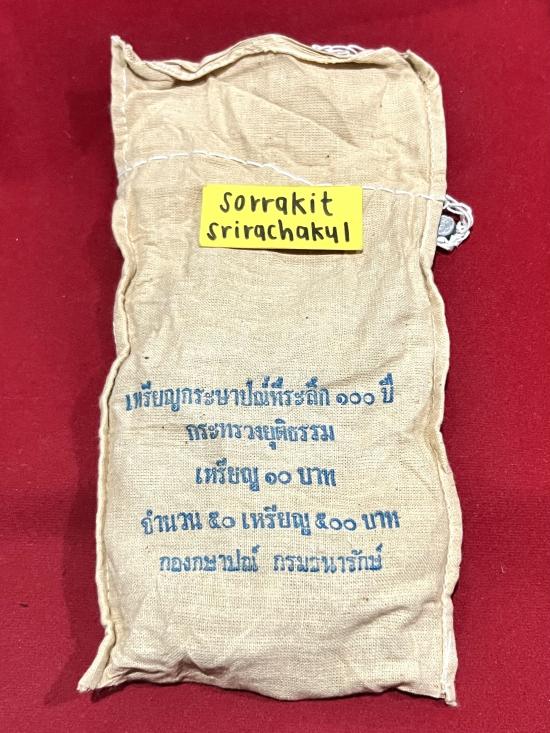 sorrakit
srirachakul
เหรียญกระษาปณ์ที่ระลึก ๑๐๐ ปี
กระทรวงยุติธรรม
เหรียญ ๑๐ บาท
จำนวน ๕๐ เหรียญ ๕๐๐ บาท
กองกษาปณ์ กรมธนารักษ์